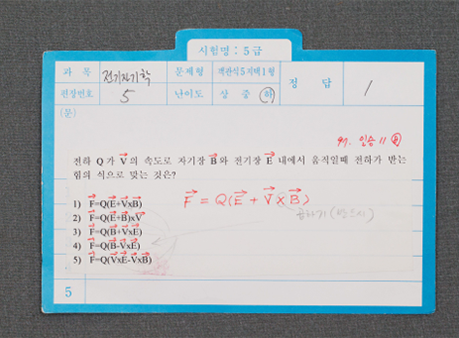 시험명 : 5 급
과 목 전기자기학 문제형 객관식5지택1형 정 답 1
편정번호 5 난이도 상 중 하
(문)
97. 인승 11
전하 Q가 V의 속도로 자기장 B와 전기장 E 내에서 움직일때 전하가 받는
힘의 식으로 맞는 것은?
1) F=Q(E+VxB)
F = Q(E + V x B)
2) F=Q(E+B)xV
3) F=Q(B+VxE)
4) F=Q(B-VxE)
5) F=Q(VxE-VxB)
5